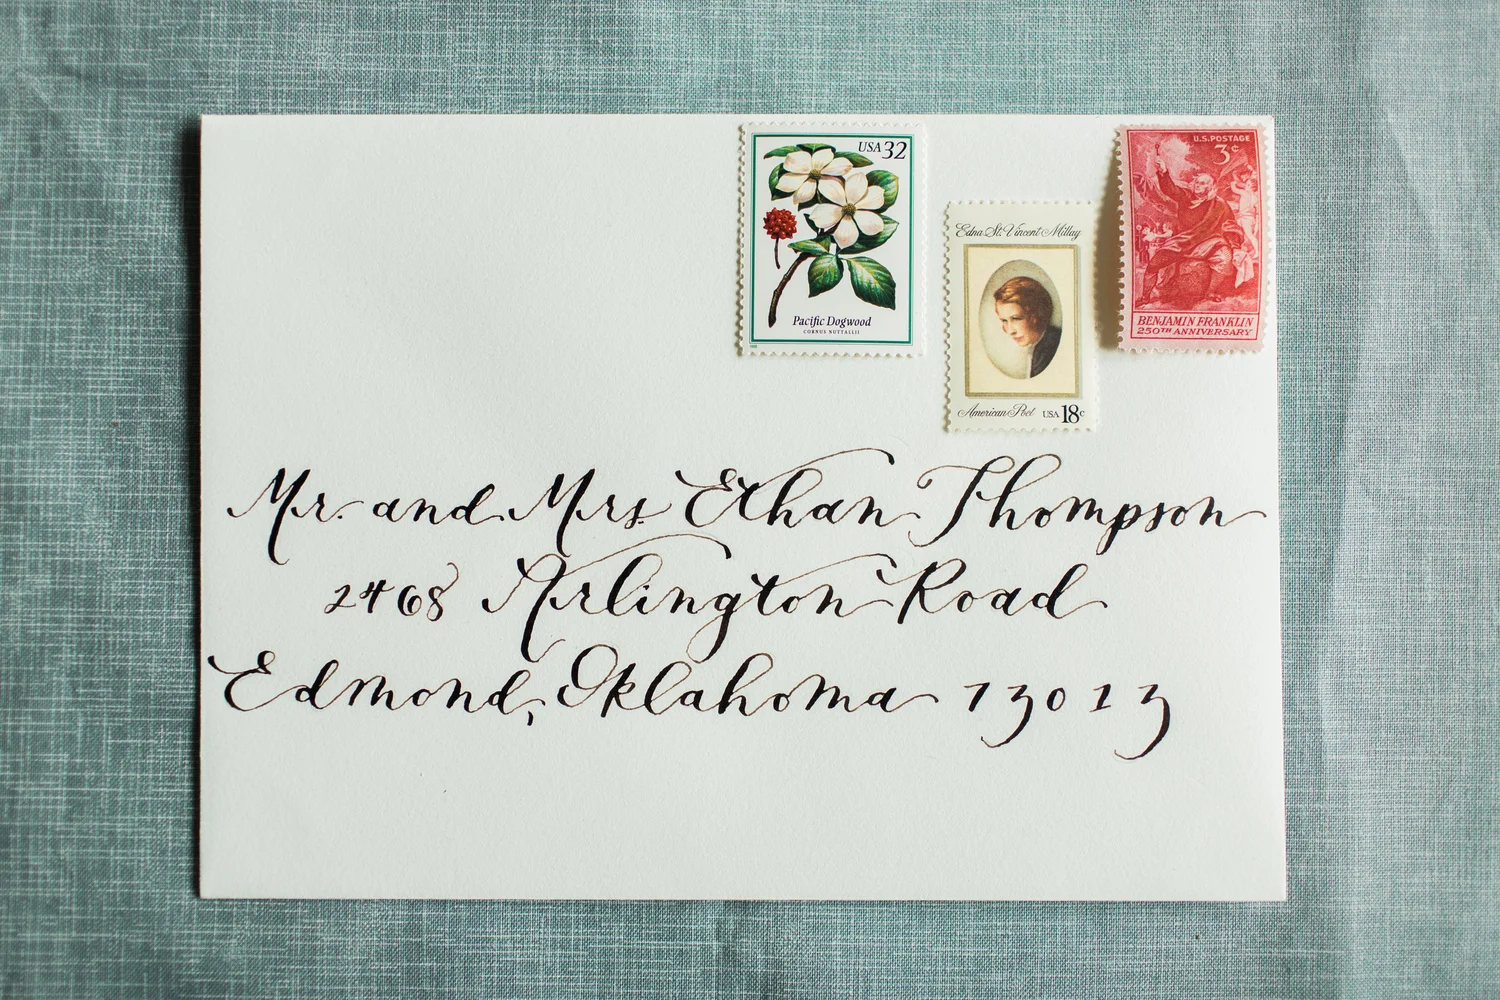 USA 32
Pacific Dogwood
CORNUS NUTTALLII
Edna St. Vincent Millay
American Poet USA 18c
U.S. POSTAGE
3¢
BENJAMIN FRANKLIN
250TH ANNIVERSARY
Mr. and Mrs. Ethan Thompson
2468 Arlington Road
Edmond, Oklahoma 73013